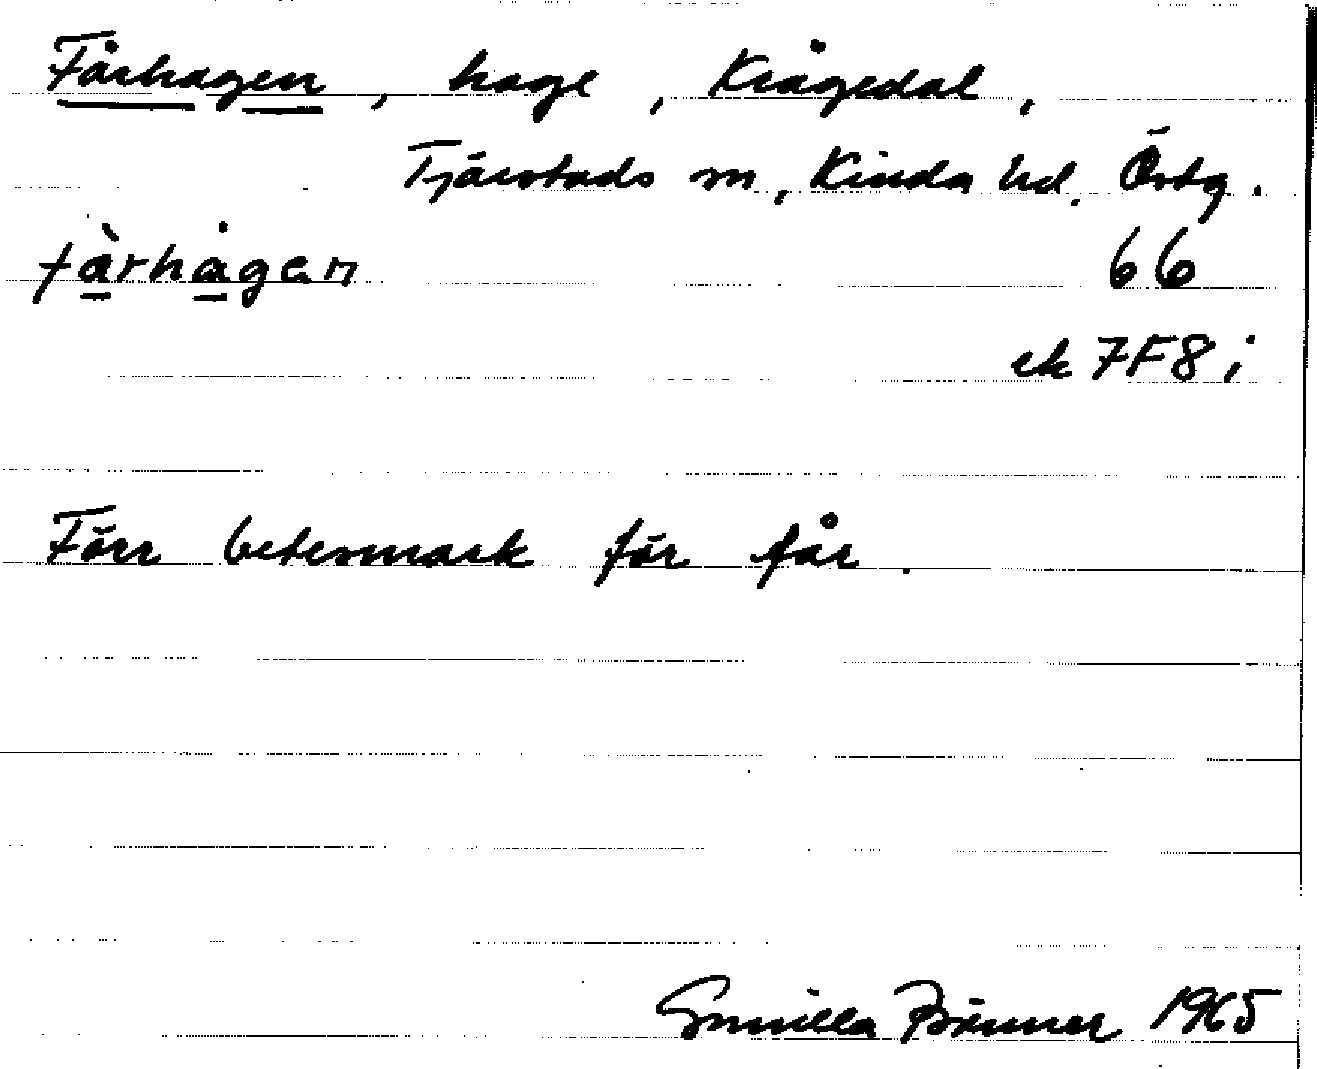 Fårhagen, hage, Krågedal,
Tjärstads sn, Kinda hd. Östg.
fàrhågen 66
ek 7F8i
Förr betesmark för får.
Gunilla 1965